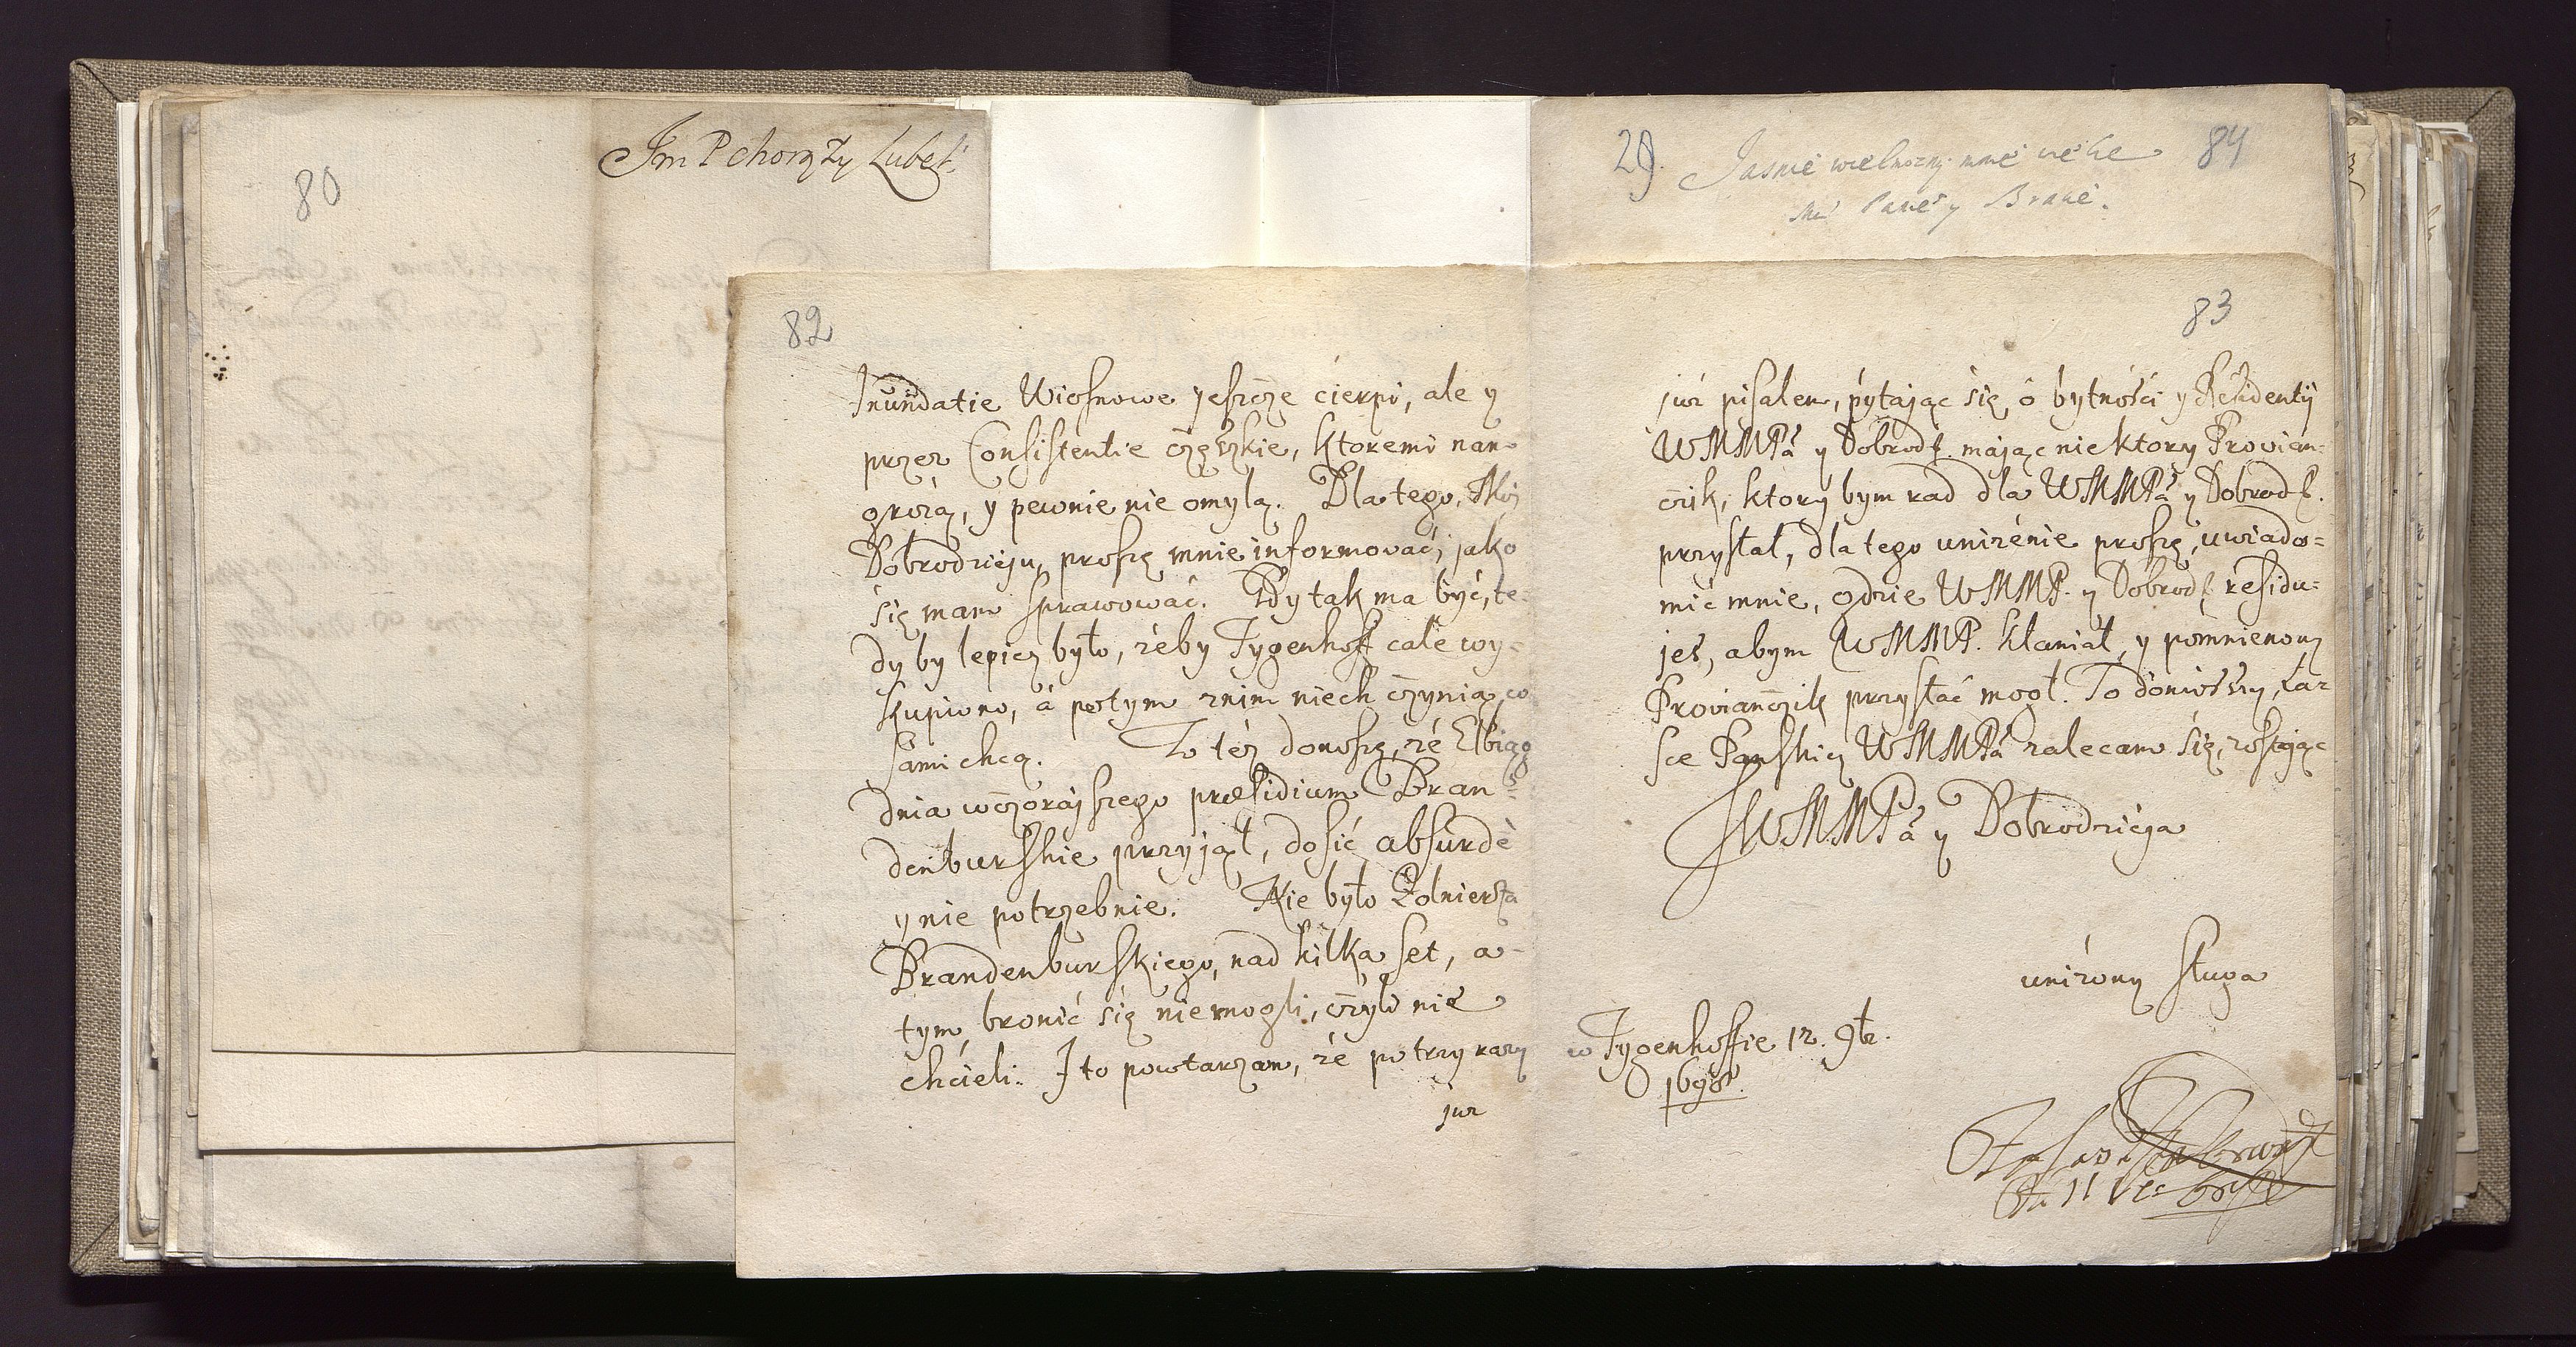 80
Jm P chorąży Lubel:
82
Inundatie Wiosnowe jeszcze cierpi, ale y
przez Consistentie częszkie, ktoremi nan
grożą, y pewnie nie omylą. Dla tego, Moy
Dobrodzieju, proszę mnie informować, jako
się mam sprawować. Gdy tak ma być, te-
dy by lepiey było, żeby Tygenhoff całe wy-
kupiono, á potym z nim niech czynią, co
sami chcą. To téz donoszę, zé Elbiąg
dnia wczorajszego præsidium Bran-
denburskie przyjął, dosić absurdè
y nie potrzebnie. Nie było Żolniersza
Brandenburskiego, nad kilka set, a
tym, bronić się nie mogli, czyli nie
chcieli. I to powtarzam, że po trzy razy
juz
29.
84
Jasnie wielmozny mnie
Panie y Bracie.
83
już pisałem, pytając się, ó bytności y Residentij
WMMPa y Dobrodź. mając niektory Provian=
czik, ktory bym rad dla WMMPa y Dobrodź.
przysłał, dla tego uniżenie proszę, uwiado=
mić mnie, gdzie WMMP. y Dobrodź. residu=
jes, abym WMMP. kłaniał, y pomnieniony
Provianczik przysłać mogł. To doniosszy, łaz
sce Pańskiey WMMPa zalecam się, zostając
JWMMPa y Dobrodzieja
uniżony sługa
w Tygenhoffie 12. 9br.
1698.